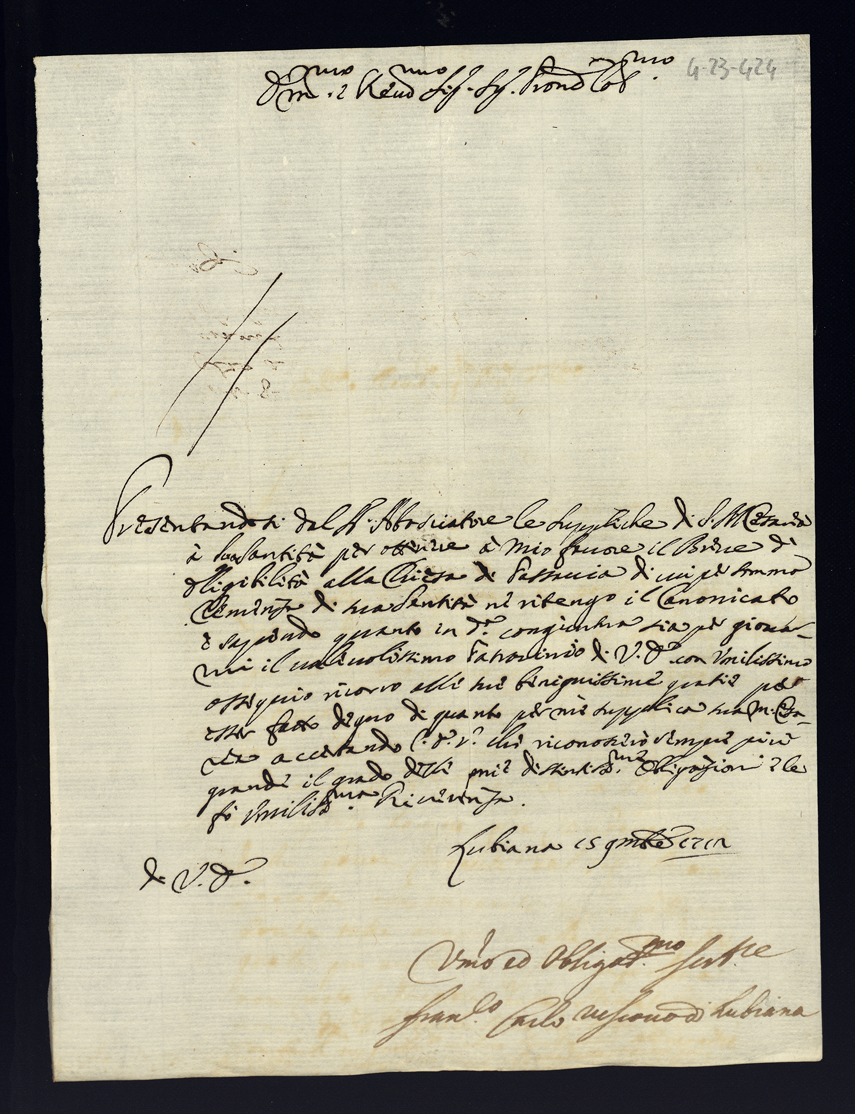 4-23-424
Ill.mo e Rev.mo Sig.r Sig.r Pron Col.mo
Presentandosi dal Sr. Abasciatore le suppliche di S. M. Cesarea
à Sua Santità per ottenere à mio favore il Breve di
Eligibilità alla Chiesa di Passavia di cui per somma
Clemenza di sua Santità ne ritengo il Canonicato
e sapiendo quanto in d.ta congiuntura sia per giovar-
mi il valevolissimo Patrocinio di V. S. con umilissimo
ossequio ricorro alle sue benignissime gratie per
esser fatto degno di quanto per me supplica sua M. Cesa-
rea accertando che riconoscerò sempre più
grande il grado delle mie distintiss.me obligazioni e le
fò umiliss.ma Riverenza.
Lubiana 15 9mbre
di V. S.
Vmo ed Obligat.mo Ser.re
Fran.co Carlo Vescovo di Lubiana